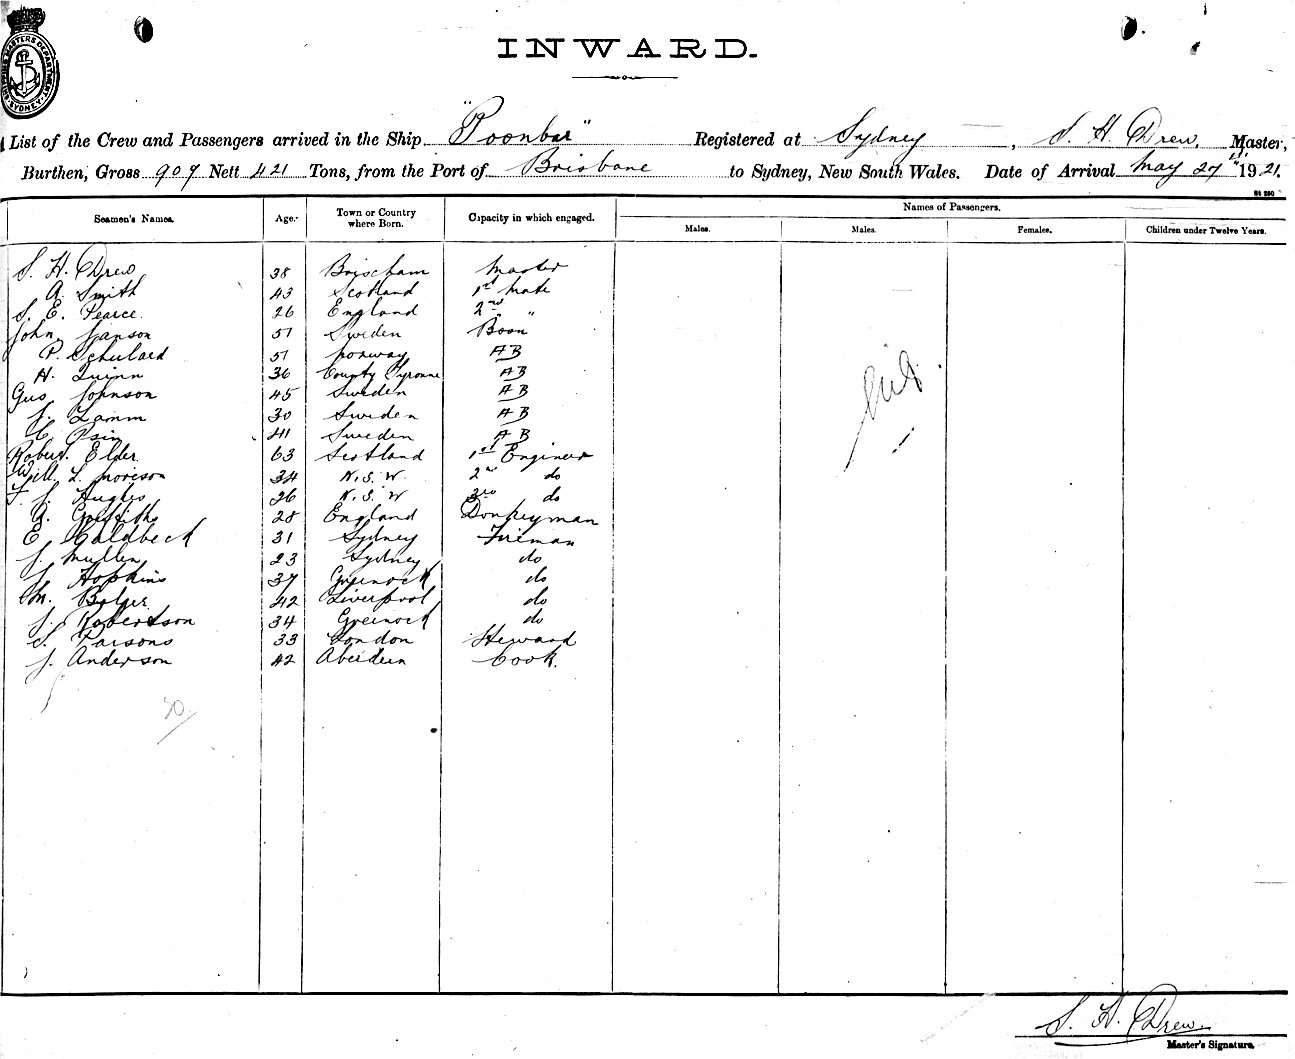 SHIPPING MASTERS DEPARTMENT SYDNEY
INWARD.
List of the Crew and Passengers arrived in the Ship "Poonbar" Registered at Sydney, S. H. Drew, Master,
Burthen, Gross 909 Nett 421 Tons, from the Port of Brisbane to Sydney, New South Wales. Date of Arrival May 27th 1921.
Seamen's Names. Age. Town or Country where Born. Capacity in which engaged. Names of Passengers.
Males. Males. Females. Children under Twelve Years.
S. H. Drew 38 Brixcham Master
A. Smith 43 Scotland 1st Mate
S. E. Pearce. 26 England 2nd "
John Janson 51 Sweden Bosn
P. Schulard 51 Norway AB
H. Quinn 36 County Tyronne AB
Gus Johnson 45 Sweden AB
J. Lamm 30 Sweden AB
C. 41 Sweden AB
Robert Elder 63 Scotland 1st Engineer
Will. L. Morison 34 N.S.W. 2nd do
F. J. Hughes 26 N.S.W 3rd do
A. Griffiths 28 England Donkeyman
E. Caldbeck 31 Sydney Fireman
J. Mullen 23 Sydney do
J. Hopkins 37 Greenock do
M. Bolger 42 Liverpool do
J. Robertson 34 Greenock do
S. Parsons 33 London Steward
J. Anderson 42 Aberdeen Cook.
20.
S. H. Drew.
Master's Signature.